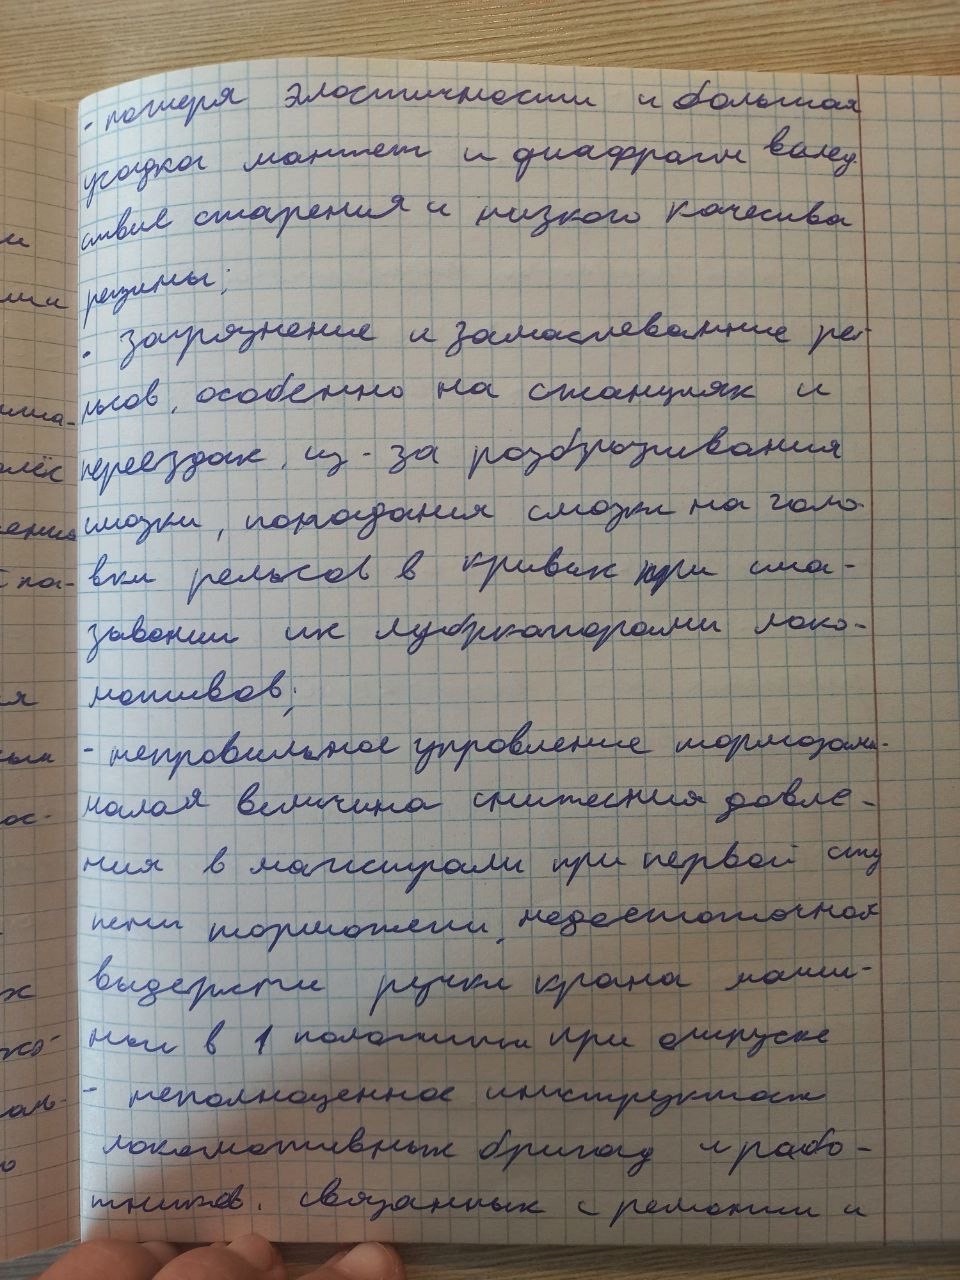 - потеря эластичности и большая
усадка манжет и диафрагм вслед
ствие старения и низкого качесива
резины;
- загрязнение и замаслевание ре-
льсов, особенно на станциях и
переездах, из-за разбрызгивания
смазки, попадания смазки на голо
вки рельсов в кривых при сма-
зывании их лубрикаторами локо-
мотивов;
- неправильное управление тормозами-
малая величина снижения давле-
ния в магистрали при первой сту
пени торможени, недостаточная
выдержти ручки крана маши-
нои в 1 положении при отпуске
- неполноценное инструктаж
локомотивных бригад и рабо-
тников. связанных с ремонти и
ми
ми
лёс
ения
па-
я
ных
ос-
х
ко-
аль-
о